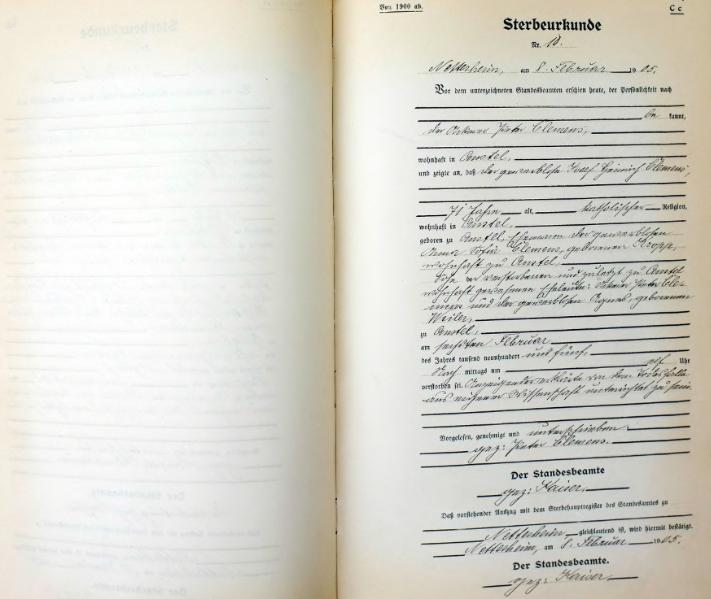 Von 1900 ab.
C c
Sterbeurkunde
Nr. 13.
Nettersheim, am 8. Februar 1905.
Vor dem unterzeichneten Standesbeamten erschien heute, der Persönlichkeit nach
be kannt,
der Ackerer Peter Clemens,
wohnhaft in Amstel,
und zeigte an, daß der gewerblose Josef Heinrich Clemens,
71 Jahre alt, katholischer Religion,
wohnhaft in Amstel,
geboren zu Amstel, Ehemann der gewerblosen
Anna Sofia Clemens, geborenen Kropp,
wohnhaft zu Amstel,
Sohn der verstorbenen und zuletzt zu Amstel
wohnhaft gewesenen Eheleute: Ackerer Peter Cle-
mens und der gewerblosen Agnes, geborenen
Weiler,
zu Amstel,
am sechsten Februar
des Jahres tausend neunhundert und fünf
Nach mittags um elf Uhr
verstorben sei. Anzeigender erklärte von dem Todesfalle
aus eigener Wissenschaft unterrichtet zu sein.
Vorgelesen, genehmigt und unterschrieben
gez: Peter Clemens.
Der Standesbeamte
gez: Kaiser.
Daß vorstehender Auszug mit dem Sterbehauptregister des Standesamtes zu
Nettersheim gleichlautend ist, wird hiermit bestätigt.
Nettersheim, am 8. Februar 1905.
Der Standesbeamte.
gez: Kaiser.